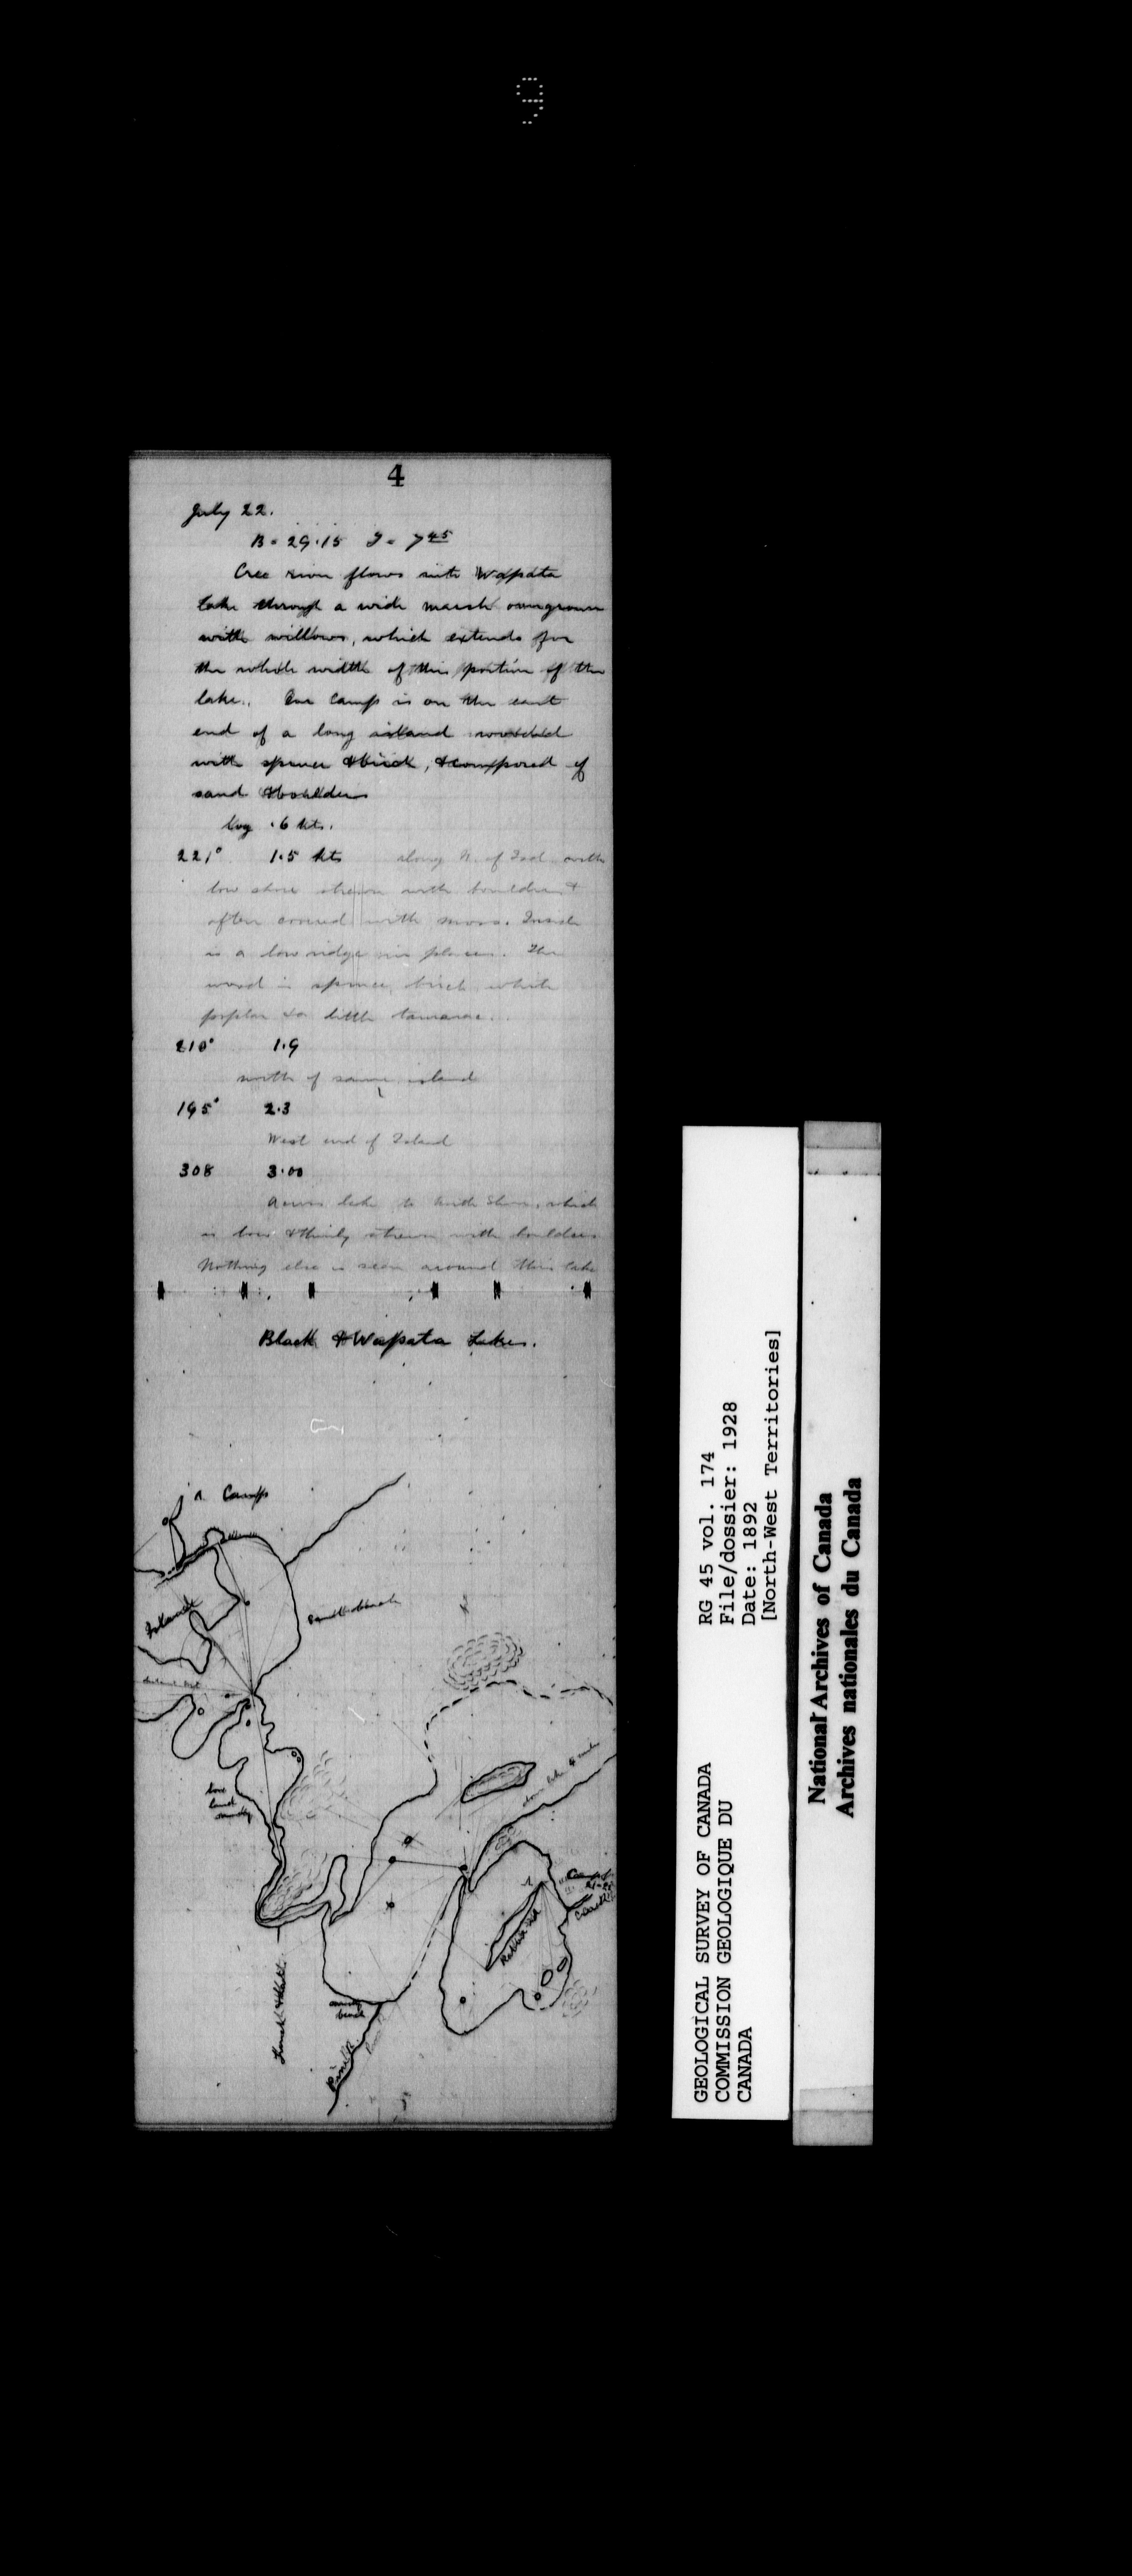 9
4
July 22.
B = 29.15 T = 7 45
Cree river flows into Wapata
lake through a wide marsh overgrown
with willows, which extends for
the whole width of this portion of the
lake. Our camp is on the east
end of a long island wooded
with spruce & birch, & composed of
sand & boulders
Log .6 kts.
221° 1.5 kts along N. of Isd. with
low shore strewn with boulders &
often covered with moss. Inside
is a low ridge in places. The
wood is spruce, birch, white
poplar & a little tamarac.
210° 1.9
north of same island
195° 2.3
West end of Island
308 3.00
Across lake to north shore, which
is low & thinly strewn with boulders
Nothing else is seen around this lake
Black & Wapata Lakes.
Camp
Island
Sand beach
low
land
sandy
Camp
21-22
Rabbit Isd
sandy
beach
Pine R
5
GEOLOGICAL SURVEY OF CANADA
COMMISSION GEOLOGIQUE DU
CANADA
RG 45 vol. 174
File/dossier: 1928
Date: 1892
[North-West Territories]
National Archives of Canada
Archives nationales du Canada